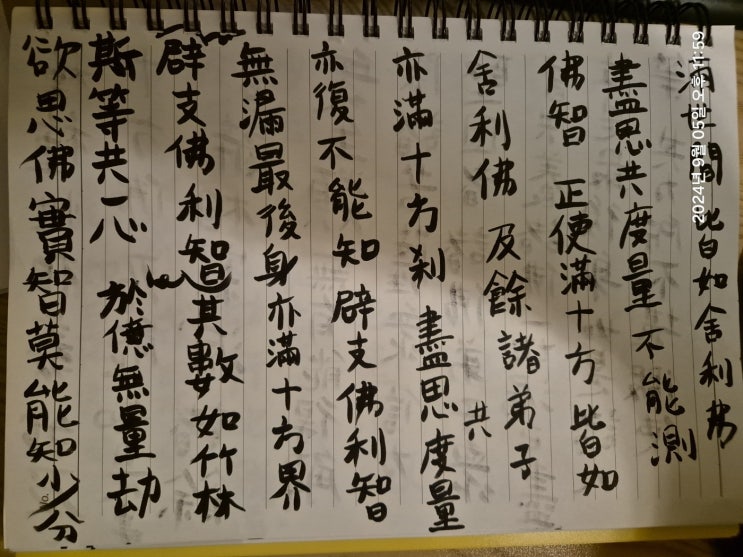 滿世間 皆如舍利弗
盡思共度量 不能測
佛智 正使滿十方 皆如
舍利佛 及餘諸弟子
亦滿十方刹 盡思共度量
亦復不能知 辟支佛利智
無漏最後身亦滿十方界
辟支佛利智其數如竹林
斯等共一心 於億無量劫
欲思佛實智莫能知少分
2024년 9월 05일 오후 11:59